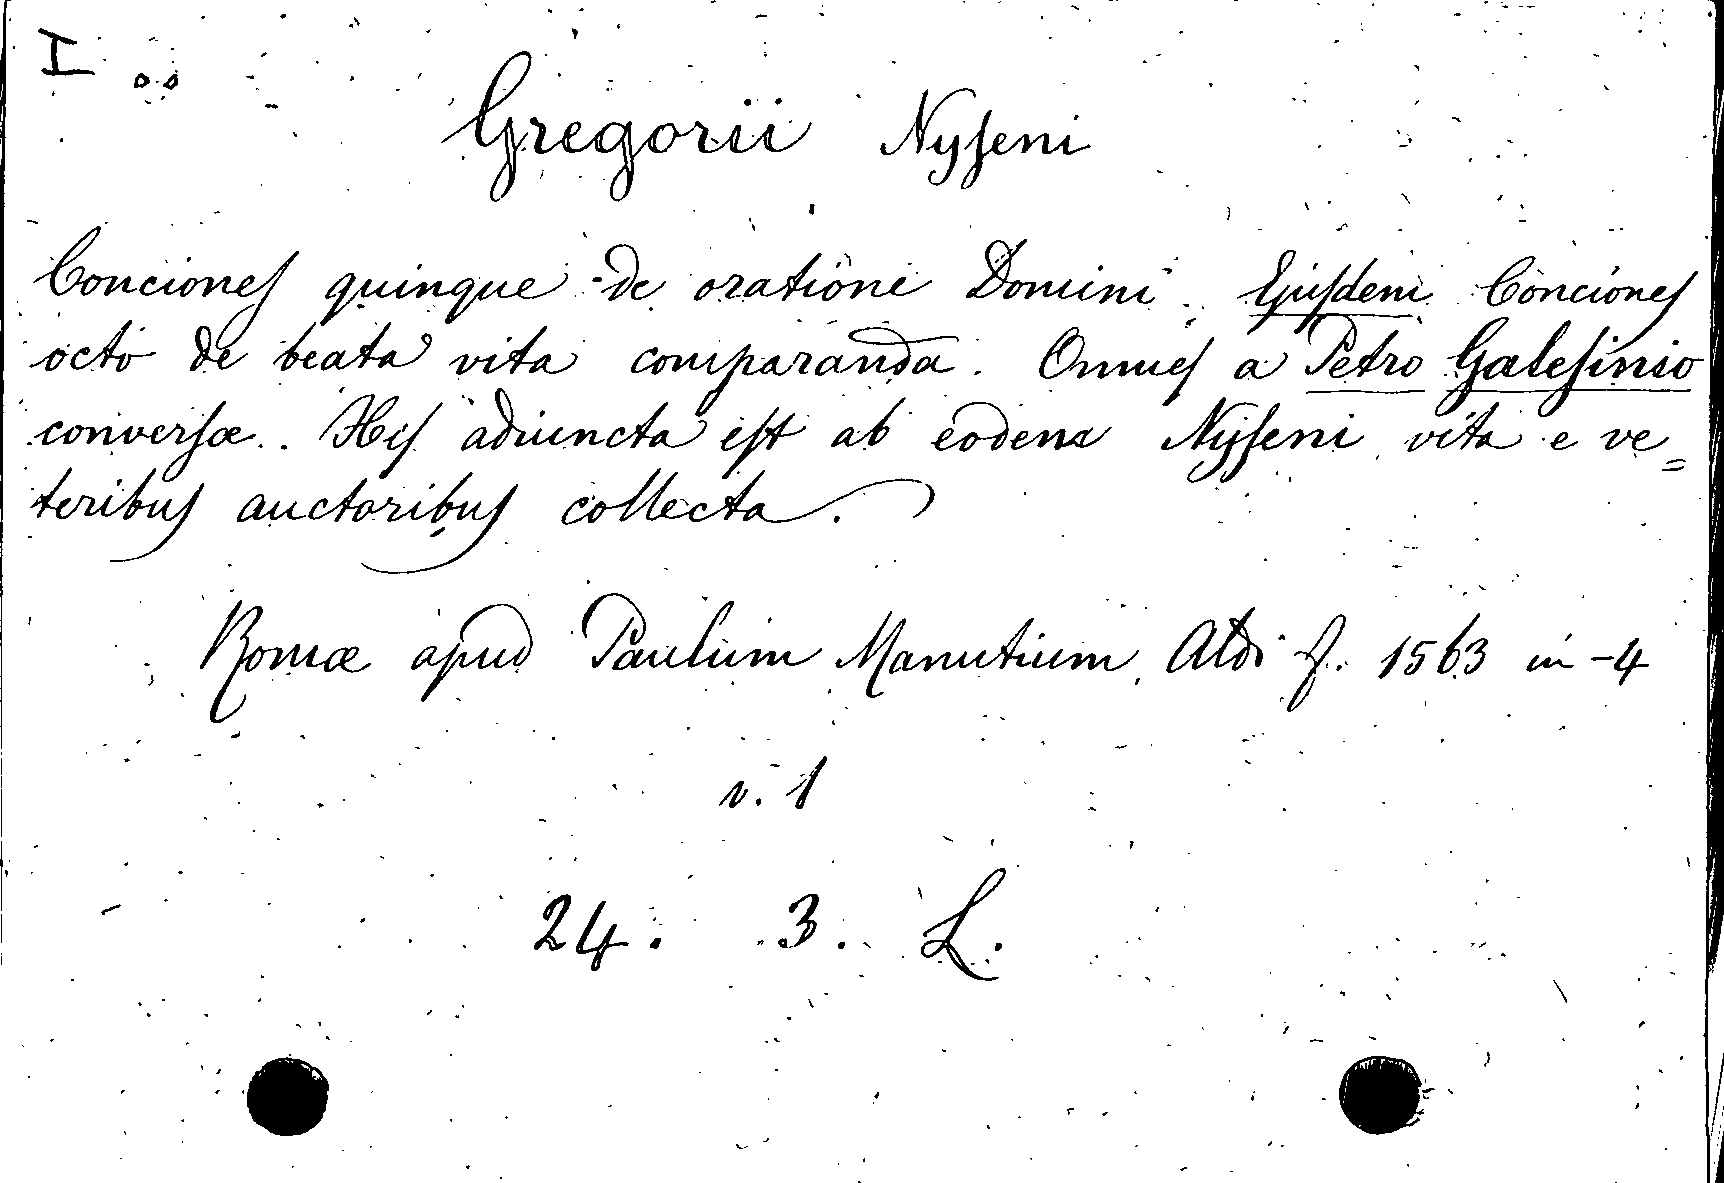 I
Gregorii Nyseni
Conciones quinque de oratione Domini. Ejusdem Conciones
octo de beata vita comparanda. Omnes a Petro Galesinio
conversæ. His adiuncta est ab eodem Nyseni vita e ve=
teribus auctoribus collecta.
Romæ apud Paulum Manutium Aldi f. 1563 in-4
v. 1
24. 3. L.